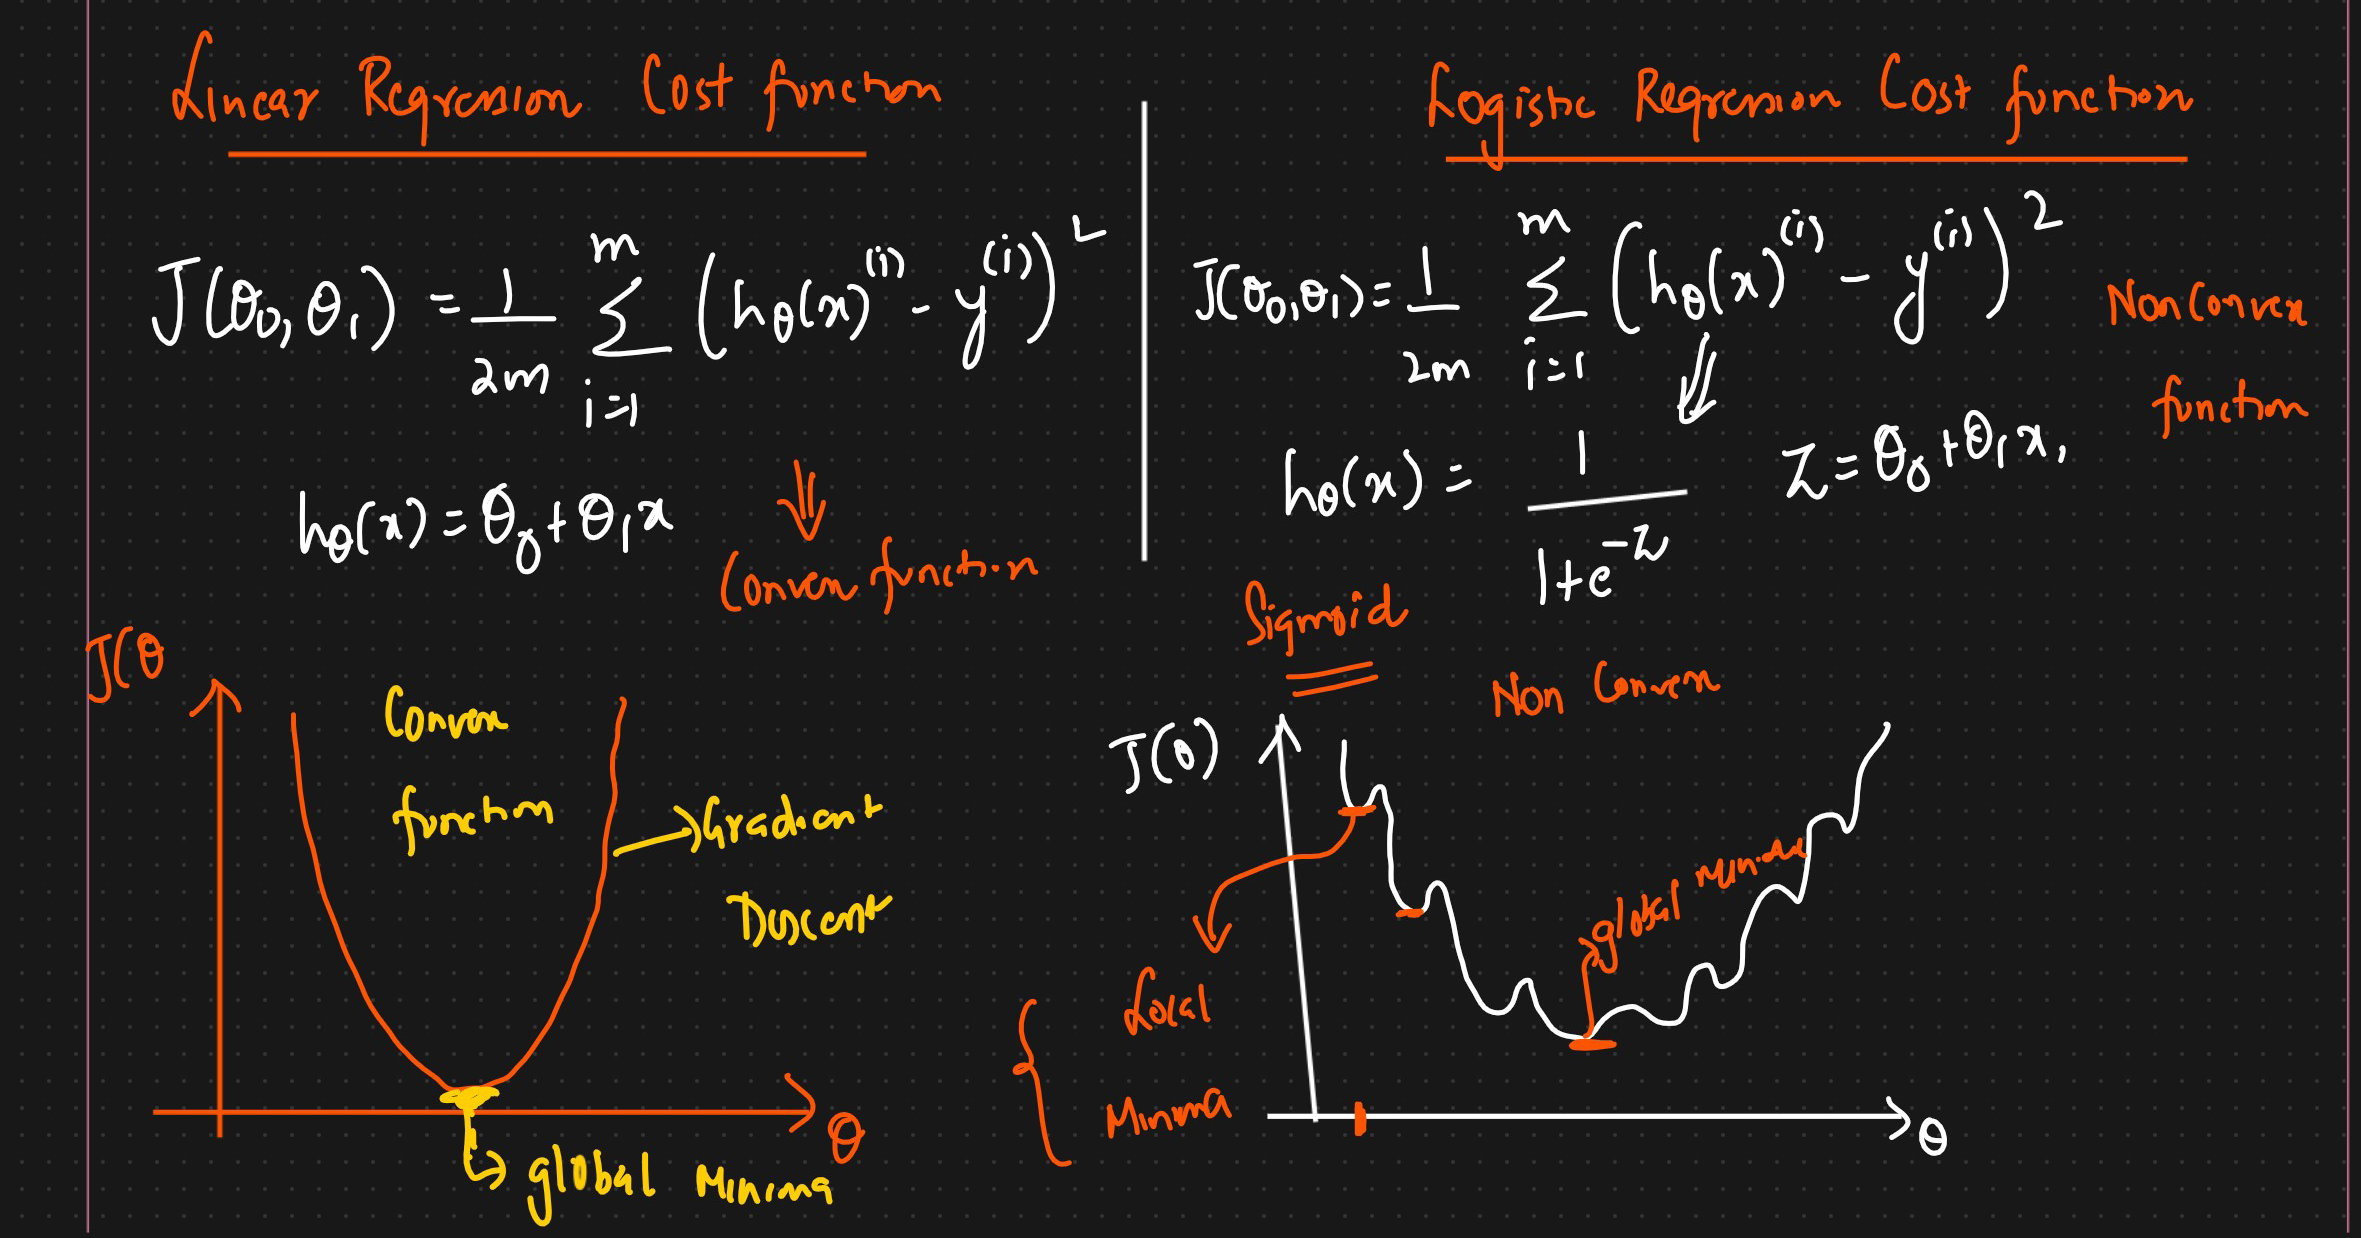 Linear Regression Cost function
J(θ0, θ1) = 1/2m m∑i=1 (hθ(x)^(i) - y^(i))^2
hθ(x) = θ0 + θ1x
Convex function
J(θ
Convex
function
Gradient
Descent
θ
global Minima
Logistic Regression Cost function
J(θ0, θ1) = 1/2m m∑i=1 (hθ(x)^(i) - y^(i))^2
Non Convex
function
hθ(x) = 1/1+e^-z z = θ0 + θ1x1
Sigmoid
Non Convex
J(θ)
global minima
Local
Minima
θ